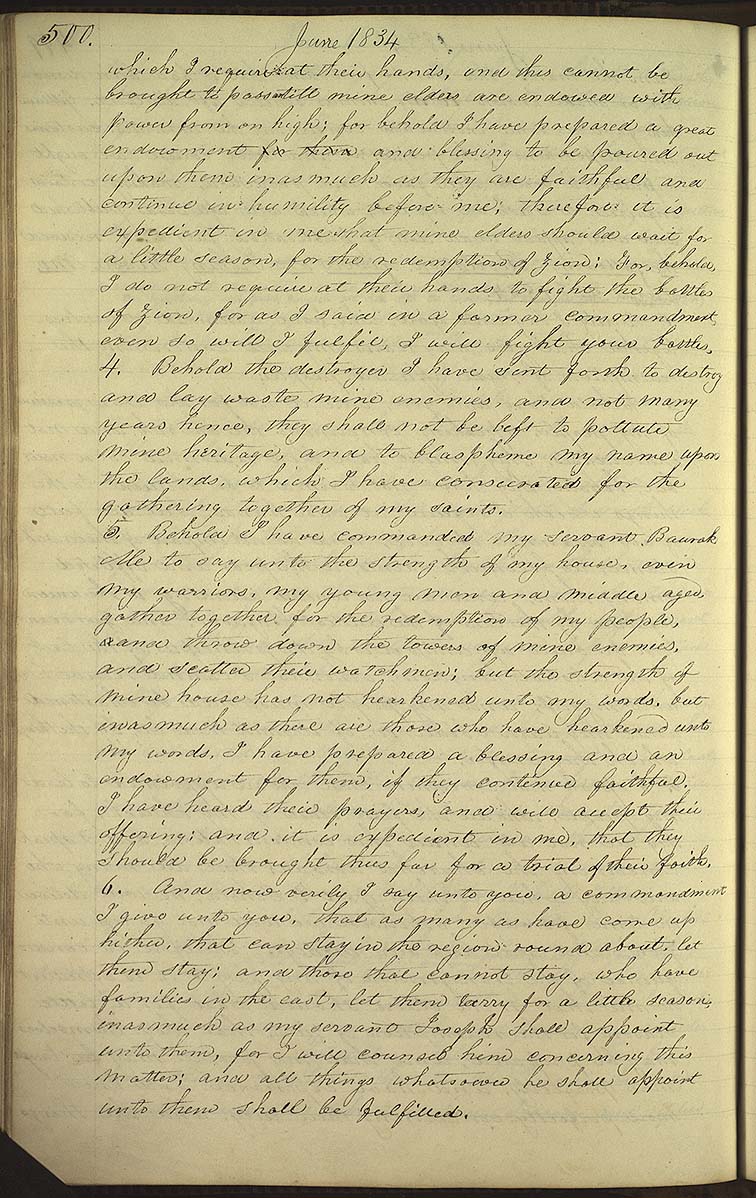 500.
June 1834
which I require at their hands, and this cannot be
brought to pass untill mine elders are endowed with
power from on high; for behold I have prepared a great
endowment for them and blessing to be poured out
upon them inasmuch as they are faithful and
continue in humility before me; therefore it is
expedient in me that mine elders should wait for
a little season, for the redemption of Zion; For, behold,
I do not require at their hands to fight the battles
of Zion, for as I said in a former commandment,
even so will I fulfil, I will fight your battles.
4. Behold the destroyer I have sent forth to destroy
and lay waste mine enemies, and not many
years hence, they shall not be left to pollute
mine heritage, and to blaspheme my name upon
the lands, which I have consecrated for the
gathering together of my saints.
5. Behold I have commanded my servant Baurak
Ale to say unto the strength of my house, even
my warriors, my young men and middle aged
gather together for the redemption of my people,
and throw down the towers of mine enemies,
and scatter their watchmen; but the strength of
mine house has not hearkened unto my words, but
inasmuch as there are those who have hearkened unto
my words, I have prepared a blessing and an
endowment for them, if they continue faithful.
I have heard their prayers, and will accept their
offering; and it is expedient in me, that they
should be brought thus far for a trial of their faith.
6. And now verily I say unto you, a commandment
I give unto you, that as many as have come up
hither, that can stay in the region round about, let
them stay; and those that cannot stay, who have
families in the east, let them tarry for a little season,
inasmuch as my servant Joseph shall appoint
unto them, for I will counsel him concerning this
matter; and all things whatsoever he shall appoint
unto them shall be fulfilled.